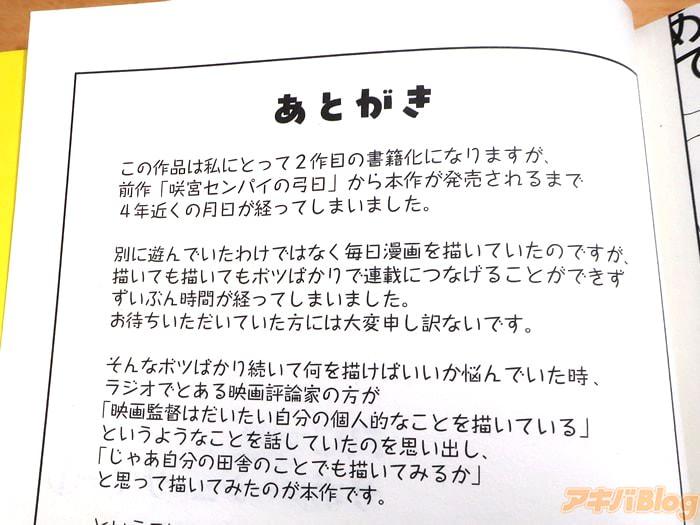 あとがき
この作品は私にとって2作目の書籍化になりますが、
前作「咲宮センパイの弓日」から本作が発売されるまで
4年近くの月日が経ってしまいました。
別に遊んでいたわけではなく毎日漫画を描いていたのですが、
描いても描いてもボツばかりで連載につなげることができず
ずいぶん時間が経ってしまいました。
お待ちいただいていた方には大変申し訳ないです。
そんなボツばかり続いて何を描けばいいか悩んでいた時、
ラジオでとある映画評論家の方が
「映画監督はだいたい自分の個人的なことを描いている」
というようなことを話していたのを思い出し、
「じゃあ自分の田舎のことでも描いてみるか」
と思って描いてみたのが本作です。
アキバBlog